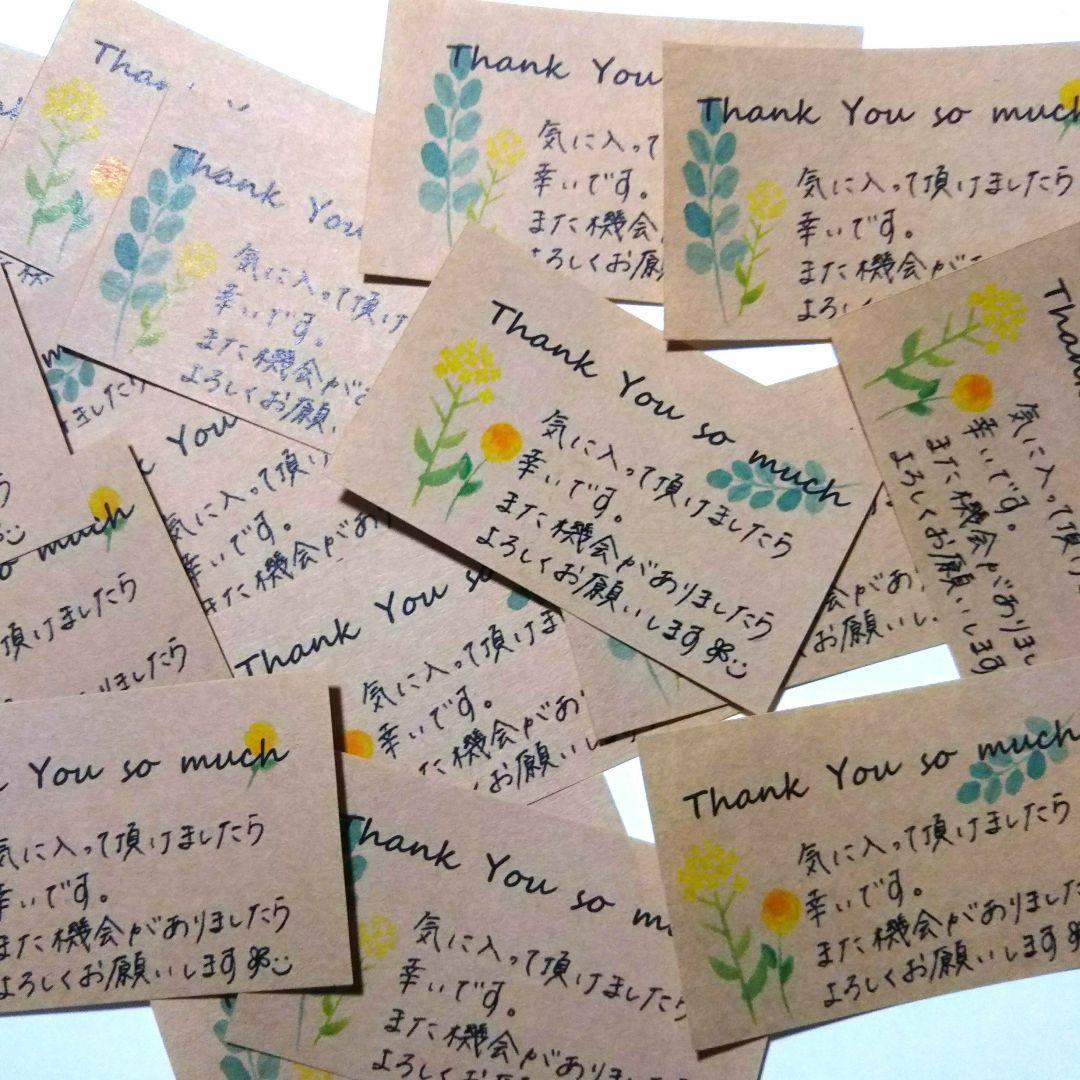 Thank You
気に入って
幸いです。
また機会
よろしくお願
Thank You so much
気に入って頂けましたら
幸いです。
また機会が
よろし
Thank You
気に入って頂け
幸いです。
また機会が
よろしくお願
Thank You so much
気に入って頂けましたら
幸いです。
また機会がありましたら
よろしくお願いします
気に入って頂
幸いです。
また機会がありまし
よろしくお願いします
You
気に入って頂
幸いです。
また機会があり
much
頂けましたら
ましたら
Thank You so
気に入って頂けま
幸いです。
また機会があ
お願い
会があ
お願いし
You so much
気に入って頂けましたら
幸いです。
また機会がありましたら
よろしくお願いします
Thank You so
気に入って頂けましたら
幸いです。
また機会があ
よろしくお願い
Thank You so much
気に入って頂けましたら
幸いです。
また機会がありましたら
よろしくお願いします